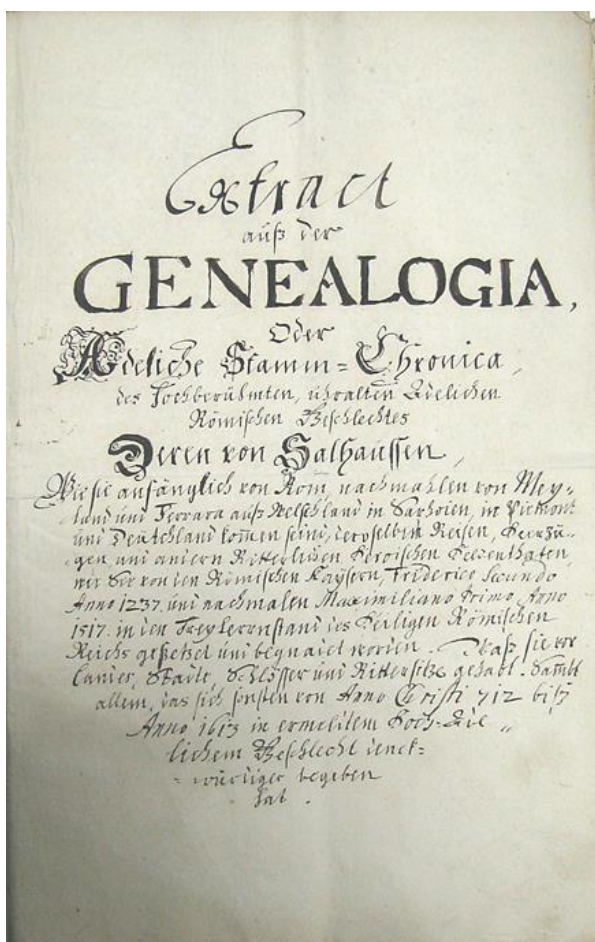 Extract
auß der
GENEALOGIA,
Oder
Adeliche Stamm=Chronica,
des Hochberühmten, uhralten Adelichen
Römischen Geschlechtes
Deren von Salhaussen,
Wie sie anfänglich von Rom, nachmahlen von Mey=
land und Ferrara auß Welschland in Saphoien, in Piemont
und Deutschland kommen seind, deroselben Reisen, Heerzü=
gen, und andern Ritterlichen Heroischen Heldenthaten,
wie Sie von den Römischen Kaysern, Friderico Secundo
Anno 1237. und nachmalen Maximiliano Primo Anno
1517. in den Freyherrnstand des Heiligen Römischen
Reichs gesetzet und begnadet worden. Waß sie vor
Länder, Städte, Schlösser und Rittersitze gehabt. Sambt
allem, das sich sonsten von Anno Christi 712 biß
Anno 1613 in ermeltem Hoch=Ade=
lichem Geschlecht denck=
=würdiges begeben
hat.